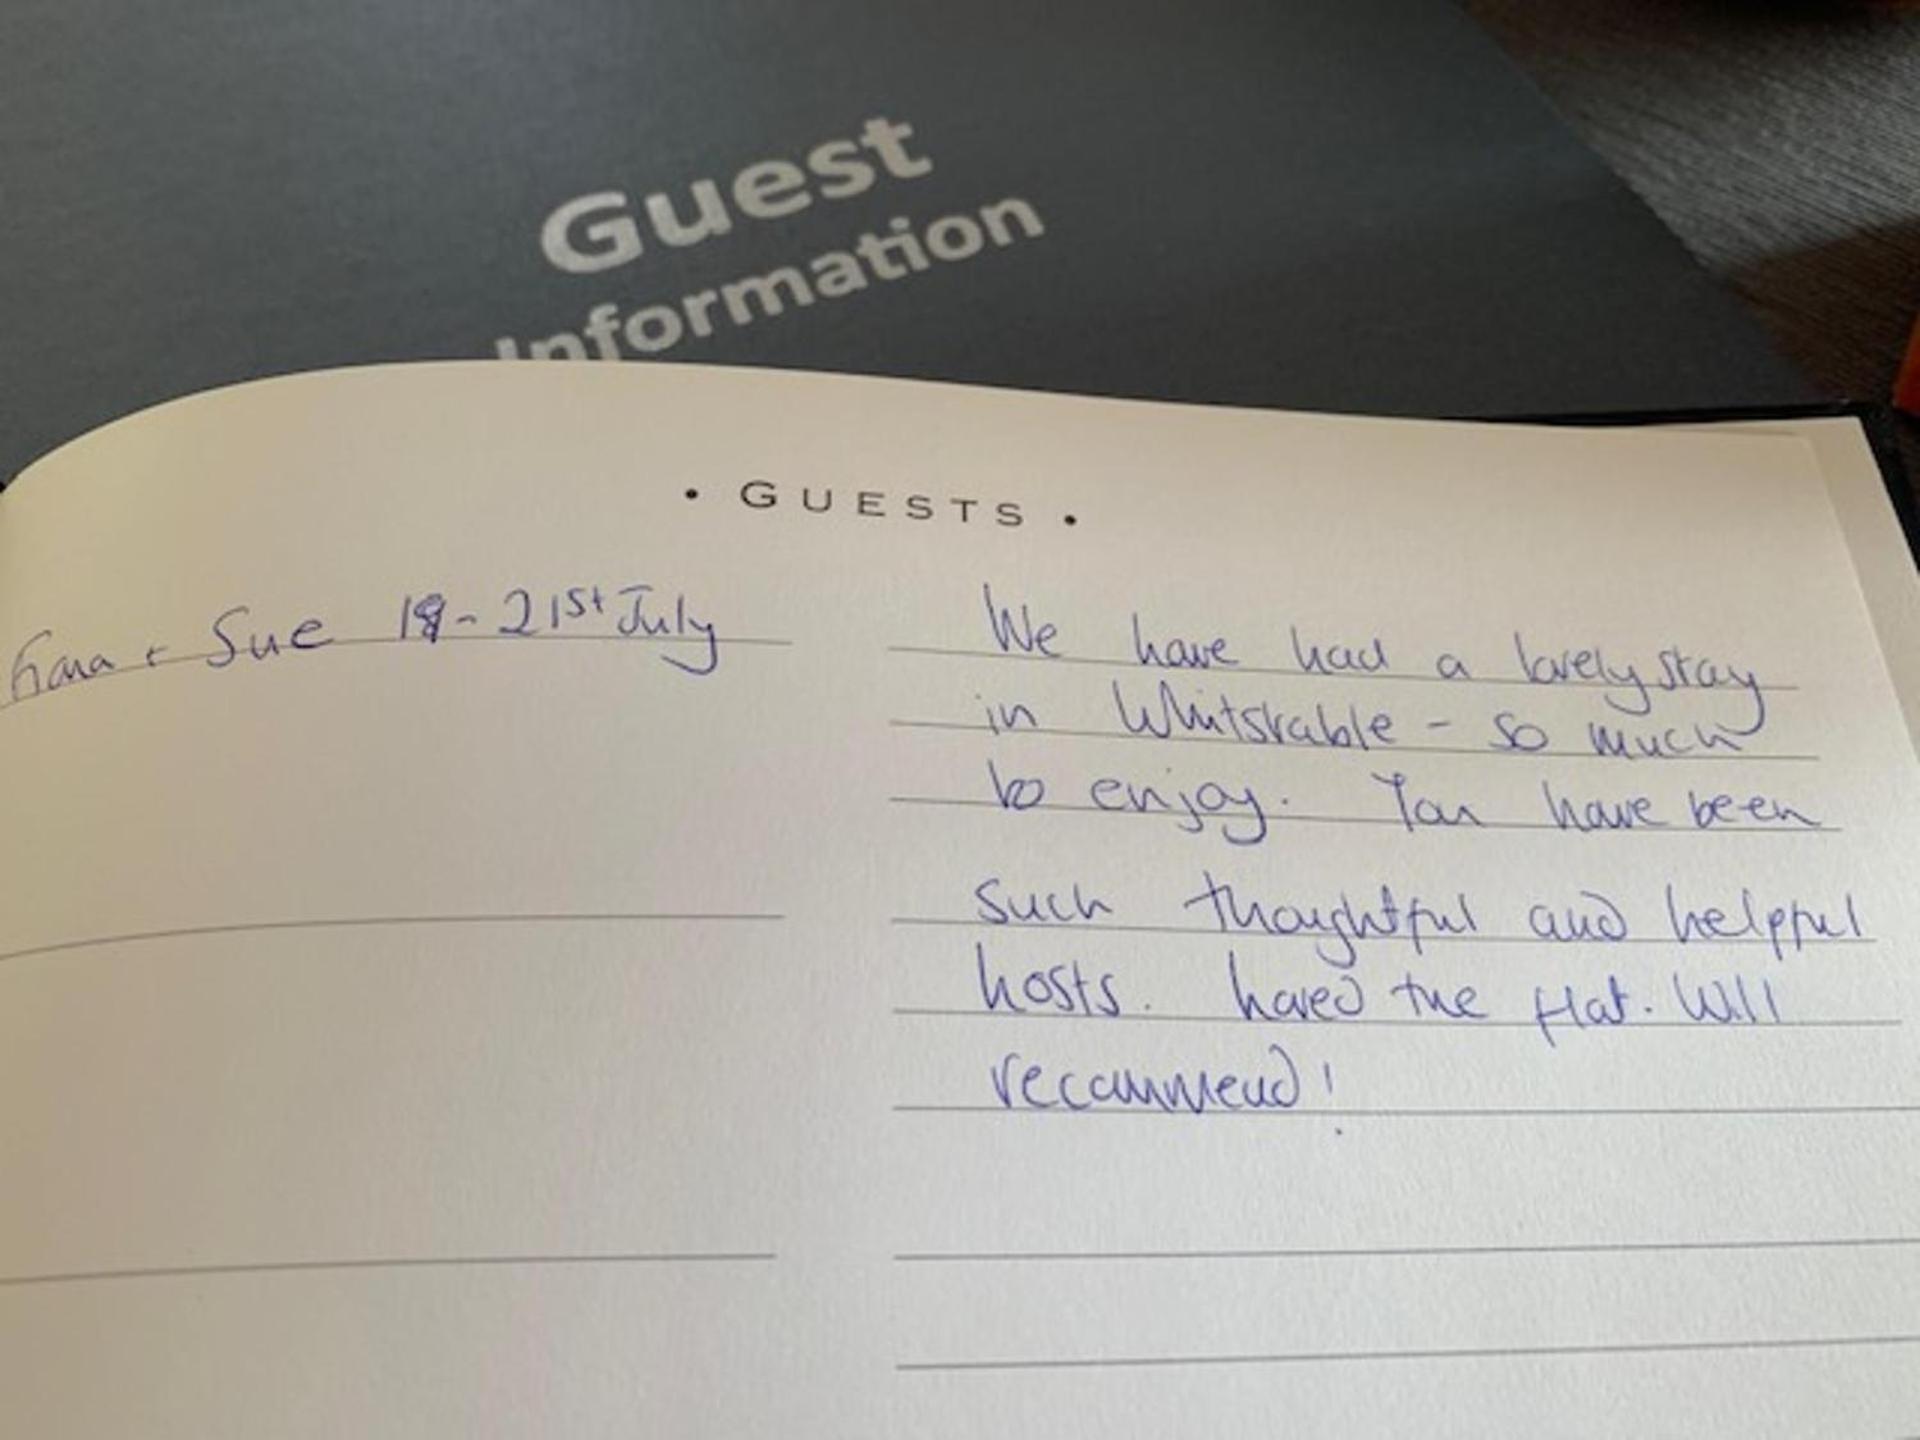 Guest
Information
• GUESTS •
+ Sue 18 - 21st July
We have had a lovely stay
in Whitstable - so much
to enjoy. You have been
such thoughtful and helpful
hosts. Loved the flat. Will
recommend!